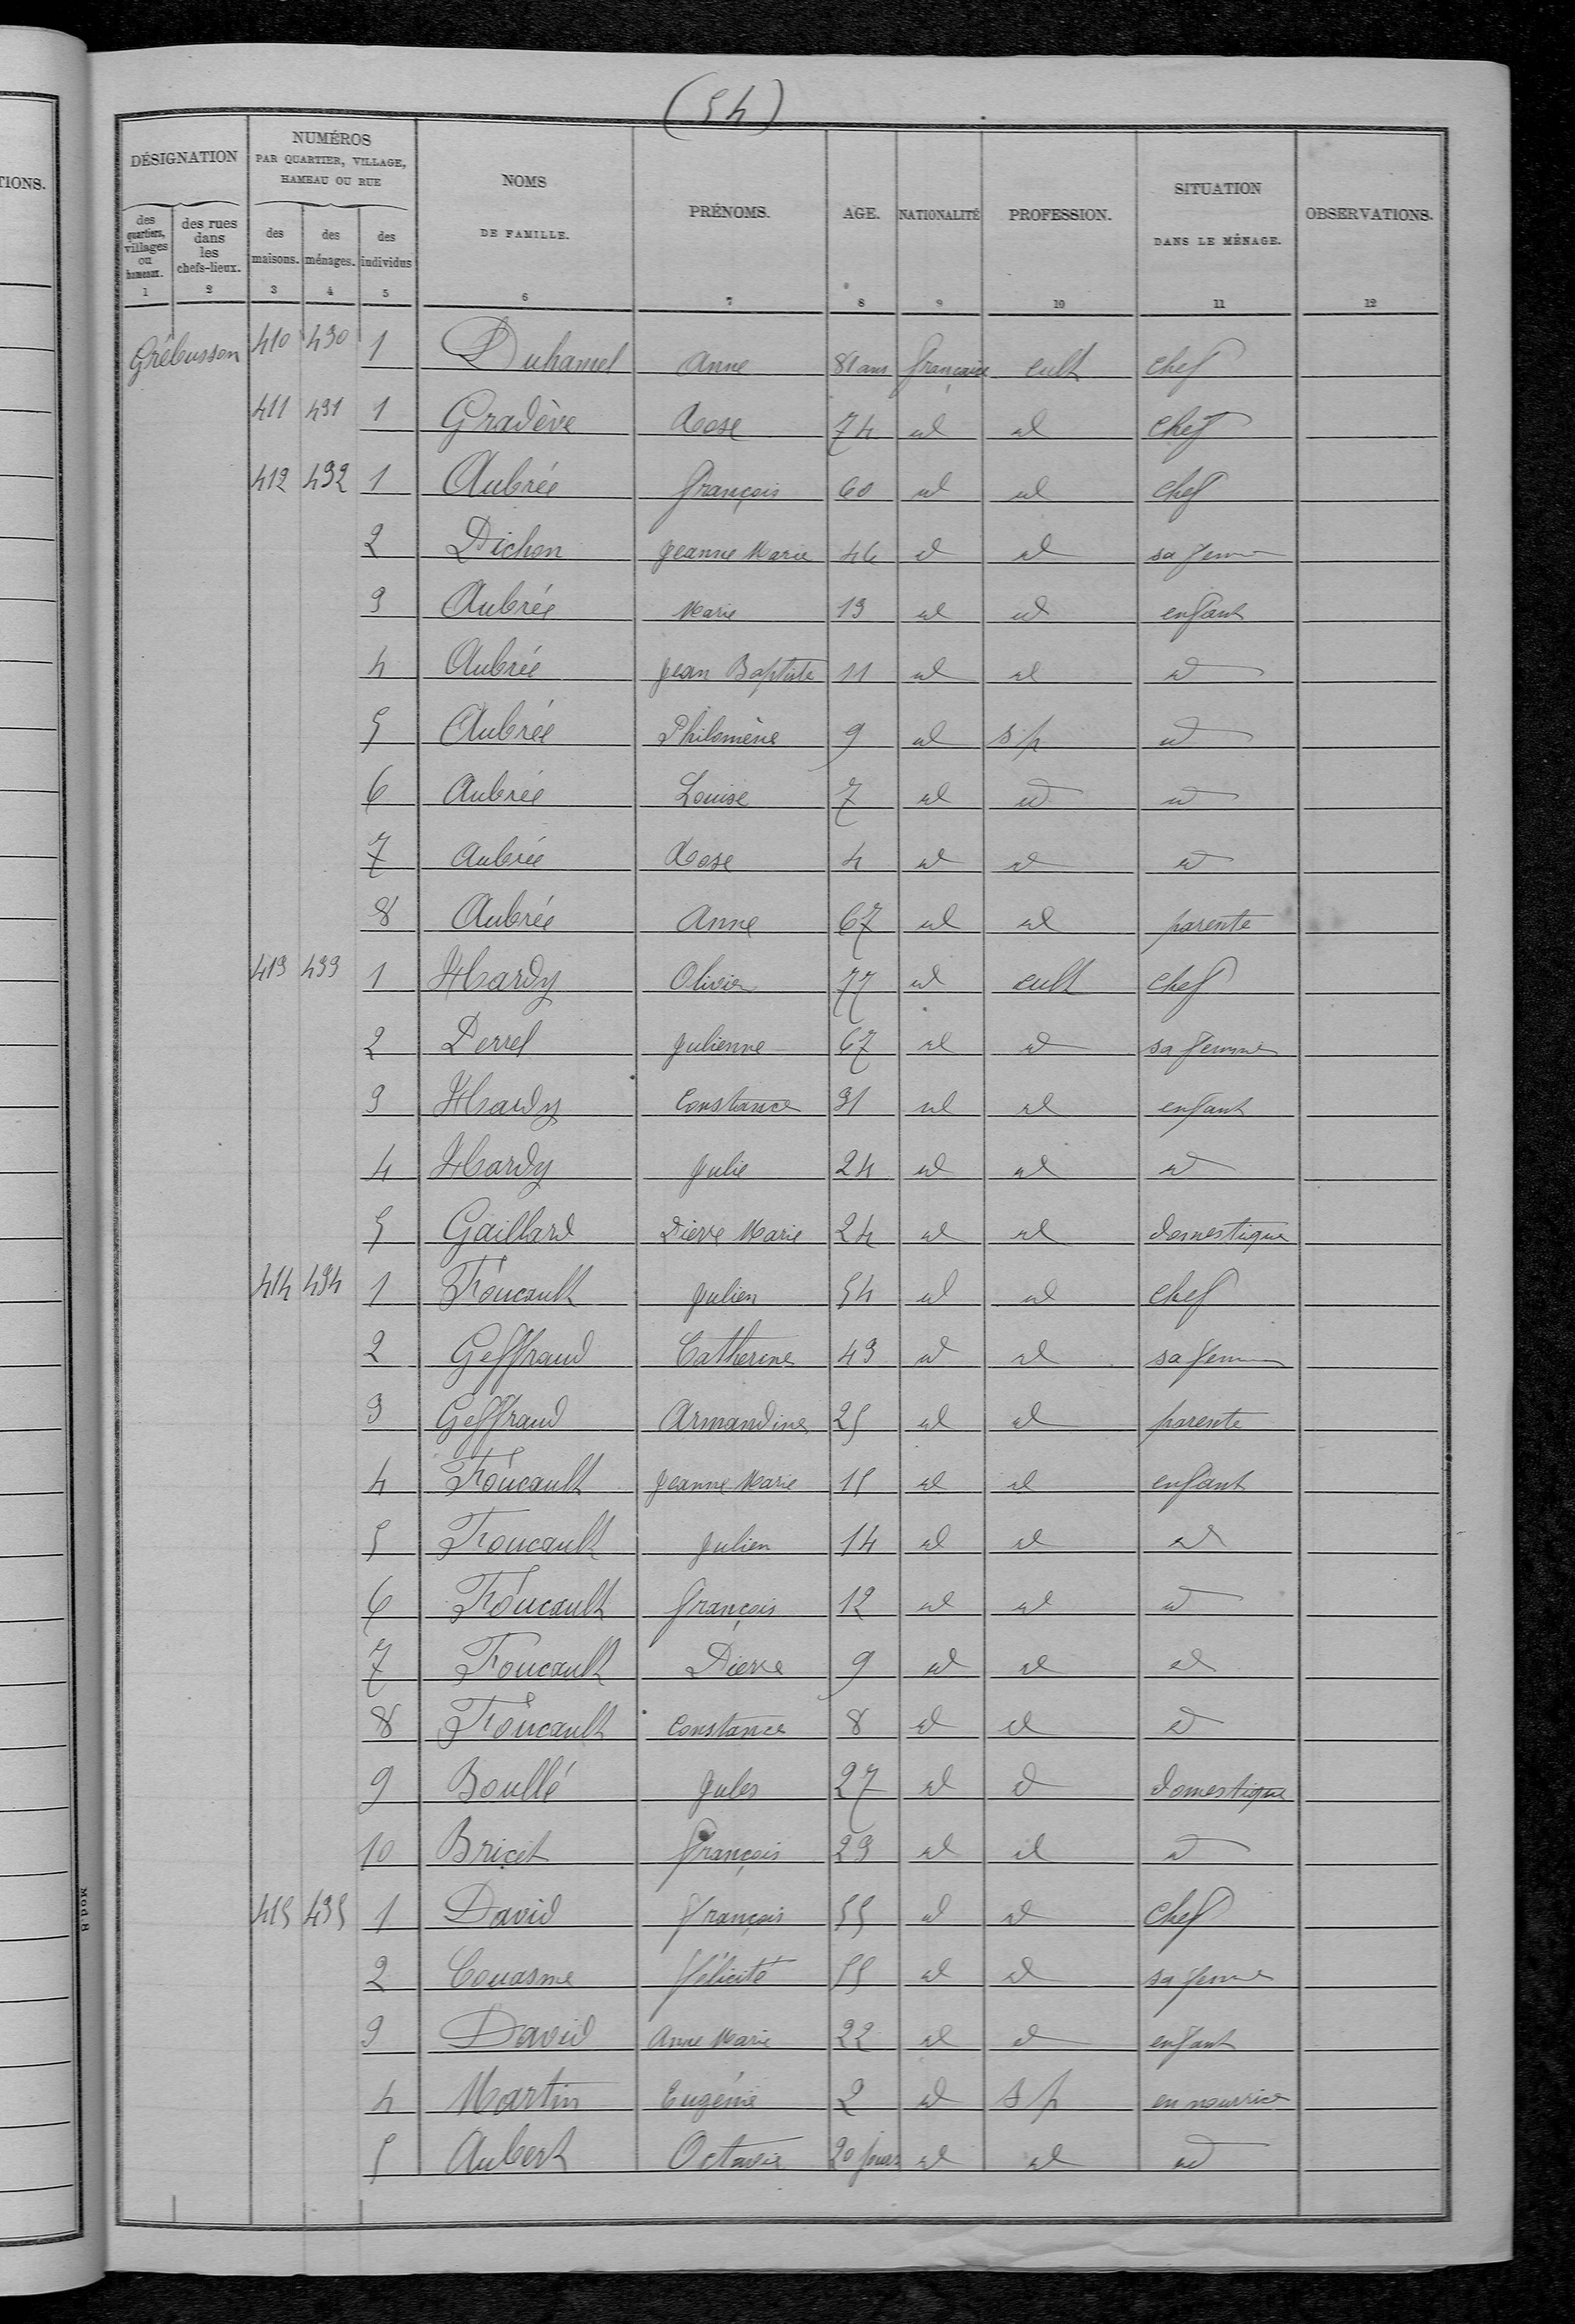 (54)
TIONS.
DÉSIGNATION
NUMÉROS PAR QUARTIER, VILLAGE, HAMEAU OU RUE
NOMS DE FAMILLE.
PRÉNOMS.
AGE.
NATIONALITÉ
PROFESSION.
SITUATION DANS LE MÉNAGE.
OBSERVATIONS.
des quartiers, villages ou hameaux.
des rues dans les chefs-lieux.
des maisons.
des ménages.
des individus
1 2 3 4 5 6 7 8 9 10 11 12
Grébusson 410 430 1 Duhamel Anne 81 ans française cult chef
411 431 1 Gradève Rose 74 id id chef
412 432 1 Aubrée françois 60 id id chef
2 Pichon Jeanne Marie 46 id id sa femme
3 Aubrée Marie 13 id id enfant
4 Aubrée Jean Baptiste 11 id id id
5 Aubrée Philomène 9 id s p id
6 Aubrée Louise 7 id id id
7 Aubrée Rose 4 id id id
8 Aubrée Anne 67 id id parente
413 433 1 Hardy Olivier 77 id cult chef
2 Perrel Julienne 67 id id sa femme
3 Hardy Constance 31 id id enfant
4 Hardy Julie 24 id id id
5 Gaillard Pierre Marie 24 id id domestique
414 434 1 Foucault Julien 54 id id chef
2 Geffraud Catherine 43 id id sa femme
3 Geffraud Armandine 25 id id parente
4 Foucault Jeanne Marie 15 id id enfant
5 Foucault Julien 14 id id id
6 Foucault françois 12 id id id
7 Foucault Pierre 9 id id id
8 Foucault Constance 8 id id id
9 Boullé Jules 27 id id domestique
10 Bricet françois 23 id id id
415 435 1 David françois 55 id id chef
2 Couasme félicité 55 id id sa femme
3 David Anne Marie 22 id id enfant
4 Martin Eugénie 2 id s p en nourrice
5 Aubert Octavie 20 jours id id id
Mod. 8